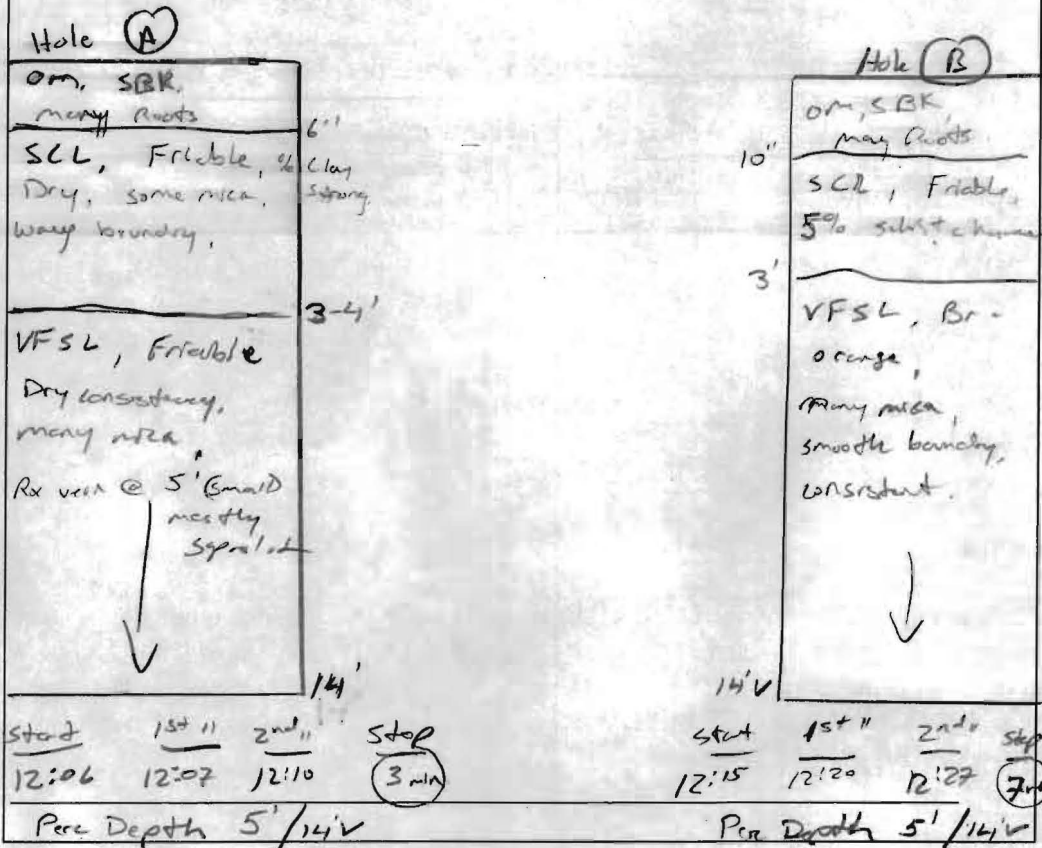 Hole A
om, SBK,
many Roots
6"
SCL, Friable, % Clay
Dry, some mica, Strong
wavy boundry,
3-4'
VFSL, Friable
Dry consistency,
many mica
Rx vein @ 5' (small)
mostly
14'
Start 1st " 2nd " Stop
12:06 12:07 12:10 3 min
Perc Depth 5'/14'V
Hole B
om, SBK
may Roots
10"
SCL, Friable,
5%
3'
VFSL, Br-
orange,
many mica,
smooth boundry,
consistent.
14'V
Start 1st " 2nd " Stop
12:15 12:20 12:27 7
Perc Depth 5'/14'V